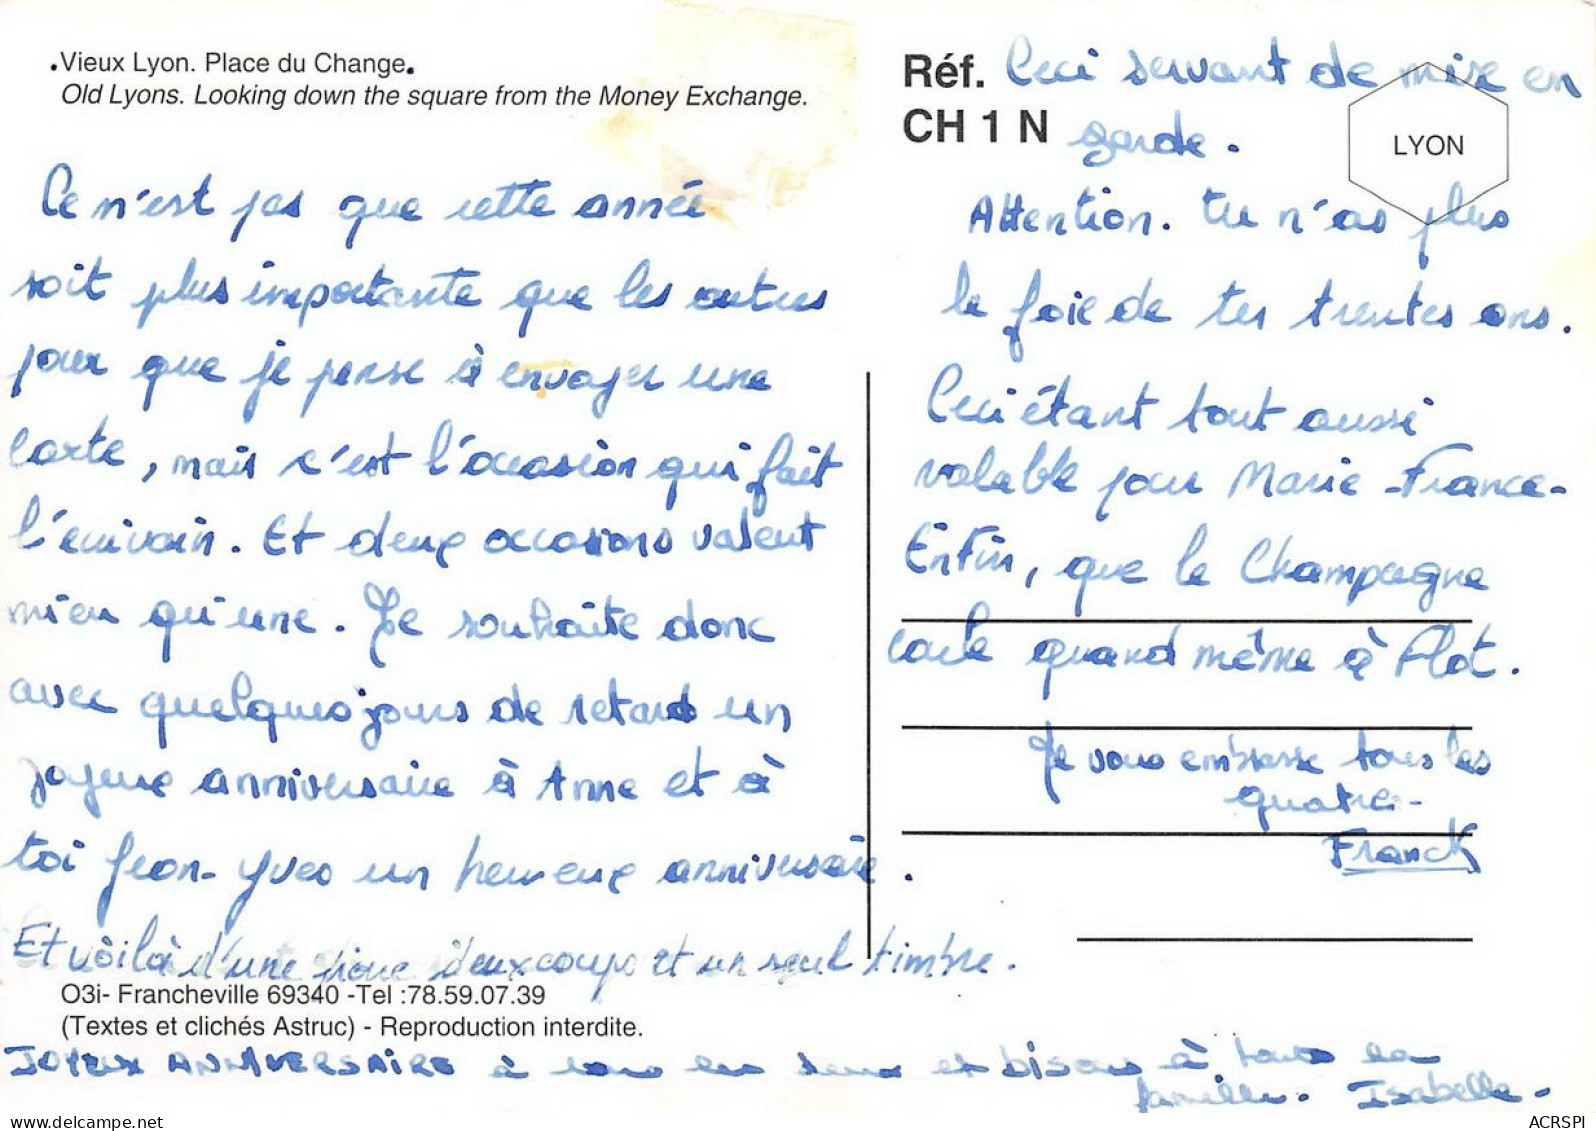 .Vieux Lyon. Place du Change.
Old Lyons. Looking down the square from the Money Exchange.
Ce n'est pas que cette année
soit plus importante que les autres
pour que je pense à envoyer une
carte, mais c'est l'occasion qui fait
l'écrivain. Et deux occasions valent
mieu qu'une. Je souhaite donc
avec quelques jours de retard un
joyeux anniversaire à Anne et à
toi Jean-Yves un heureux anniversaire.
Et voilà d'une pierre deux coups et un seul timbre.
O3i- Francheville 69340 -Tel :78.59.07.39
(Textes et clichés Astruc) - Reproduction interdite.
JOYEUX ANNIVERSAIRE à tous les deux et bisous à toute la
famille. Isabelle.
Réf.
CH 1 N
LYON
Ceci servant de mise en
garde.
Attention. tu n'as plus
le foie de tes trentes ans.
Ceci étant tout aussi
valable pour Marie-France-
Enfin, que le Champagne
coule quand même à Flot.
Je vous embrasse tous les
quatre-
Franck
delcampe.net
ACRSPI